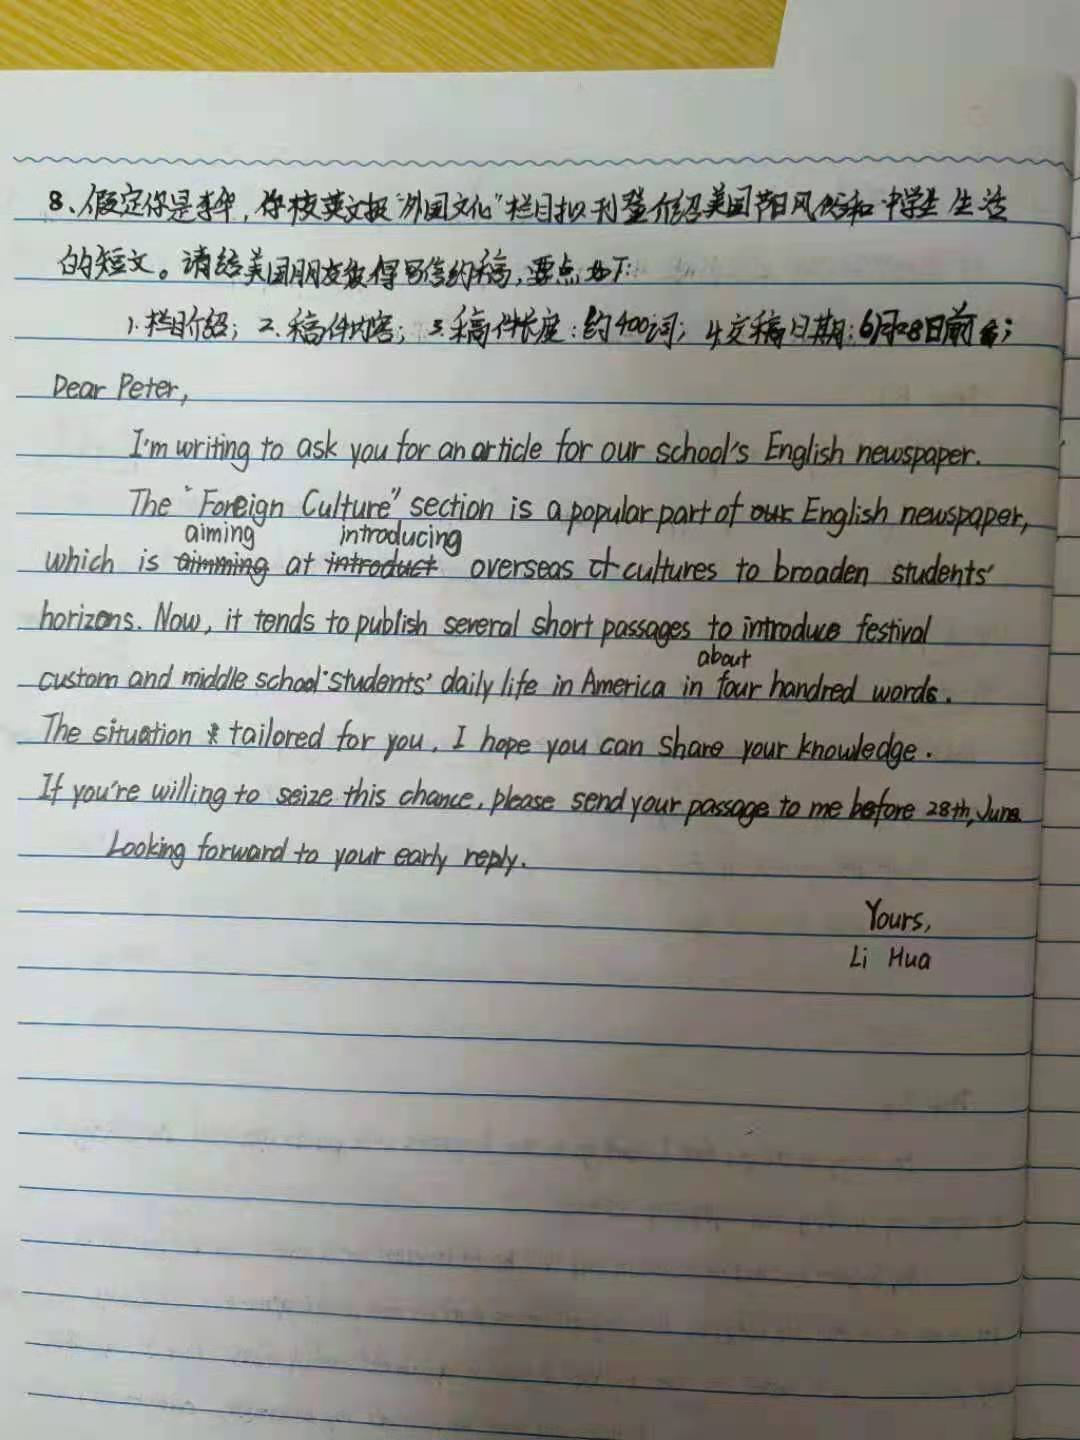 8、假定你是李华，你校英文报"外国文化"栏目拟刊登介绍美国节日风俗和中学生生活
的短文。请给美国朋友彼得写信约稿，要点如下：
1.栏目介绍；2.稿件内容；3.稿件长度：约400词；4.交稿日期：6月28日前；
Dear Peter,
I'm writing to ask you for an article for our school's English newspaper.
The "Foreign Culture" section is a popular part of our English newspaper,
aiming introducing
which is aimming at introduct overseas cultures to broaden students'
horizons. Now, it tends to publish several short passages to introduce festival
about
custom and middle school students' daily life in America in four handred words.
The situation tailored for you. I hope you can share your knowledge.
If you're willing to seize this chance, please send your passage to me before 28th, June.
Looking forward to your early reply.
Yours,
Li Hua